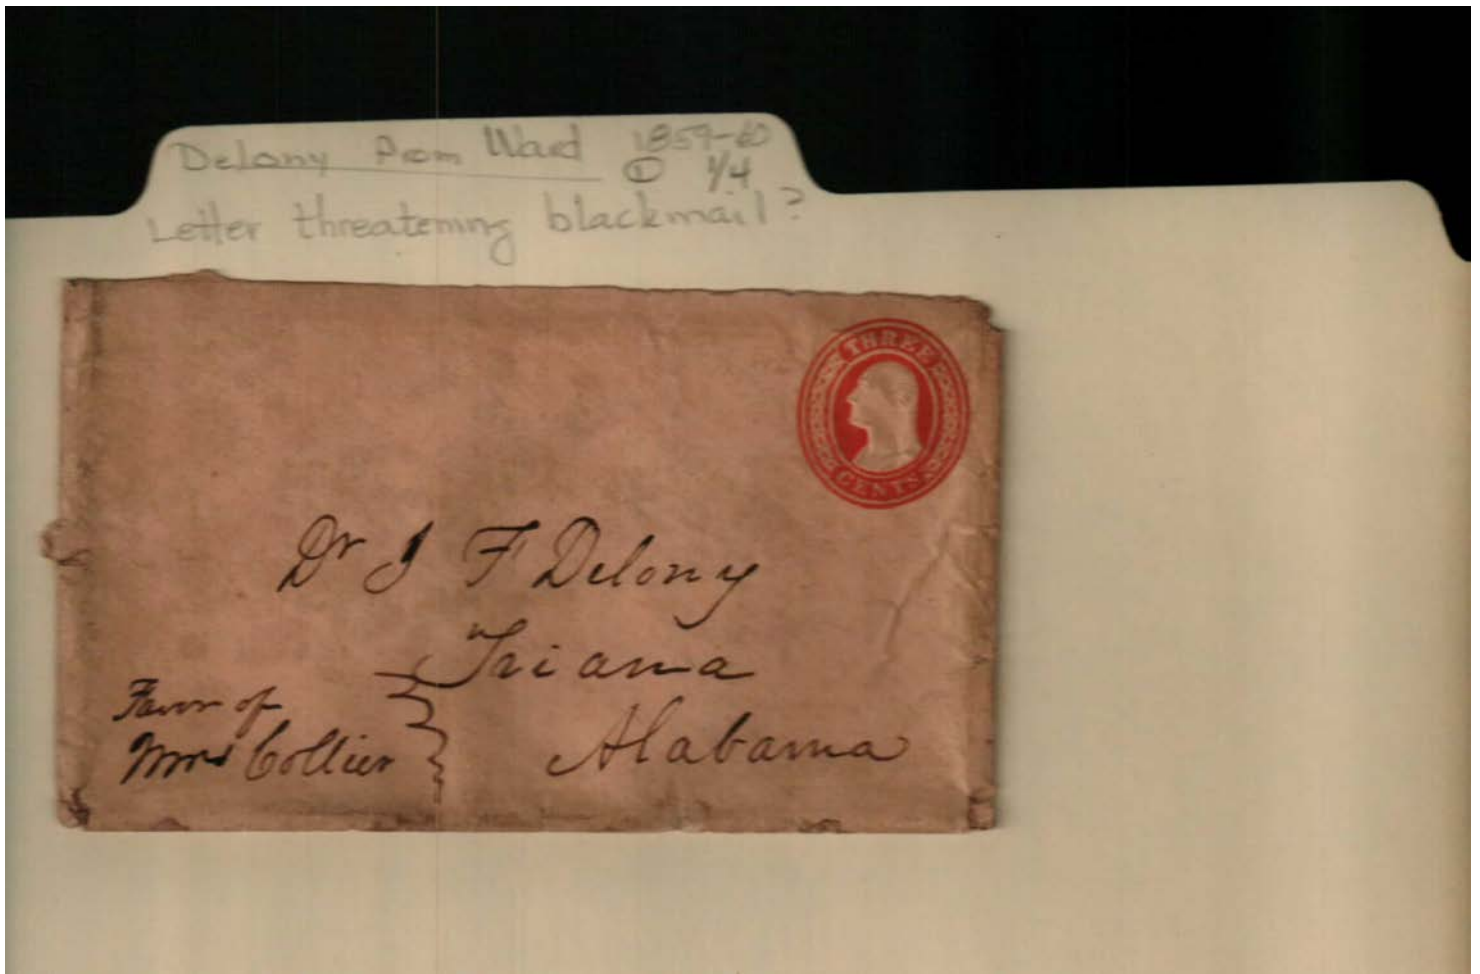 Delony from Ward 1859-60
① 1/4
Letter threatening blackmail?
THREE
CENTS
Dr J F Delony
Triana
Alabama
Favor of
Mrs Collier